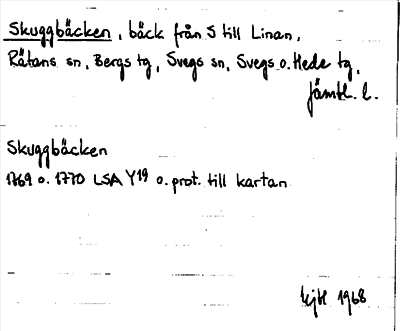 Skuggbäcken, bäck från S till Linan,
Rätans sn, Bergs tg, Svegs sn, Svegs o. Hede tg,
Jämtl. l.
Skuggbäcken
1769 o. 1770 LSA Y19 o. prot. till kartan
1968